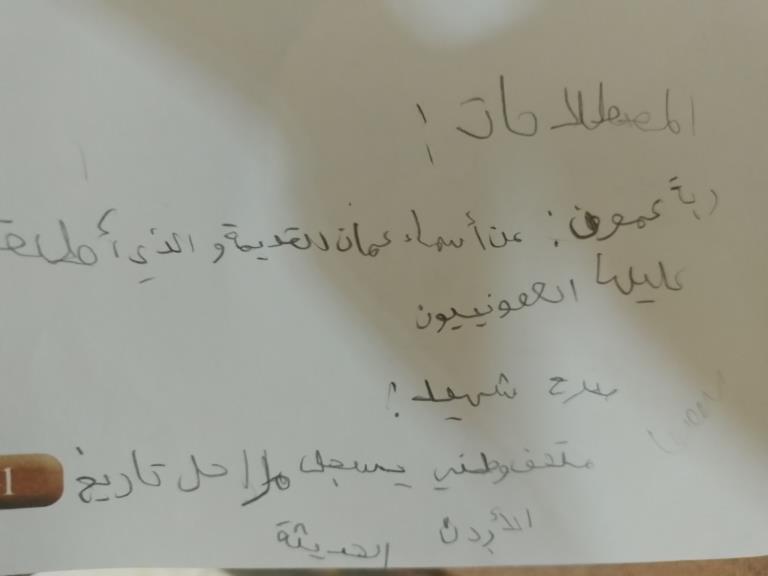 المصطلاحات :
ربة عمون : من أسماء عمان القديمة و الذي أطلقه
عليها العمونييون
صرح شهيد :
متحف وطني يسجل مراحل تاريخ
الأردن الحديثة
1